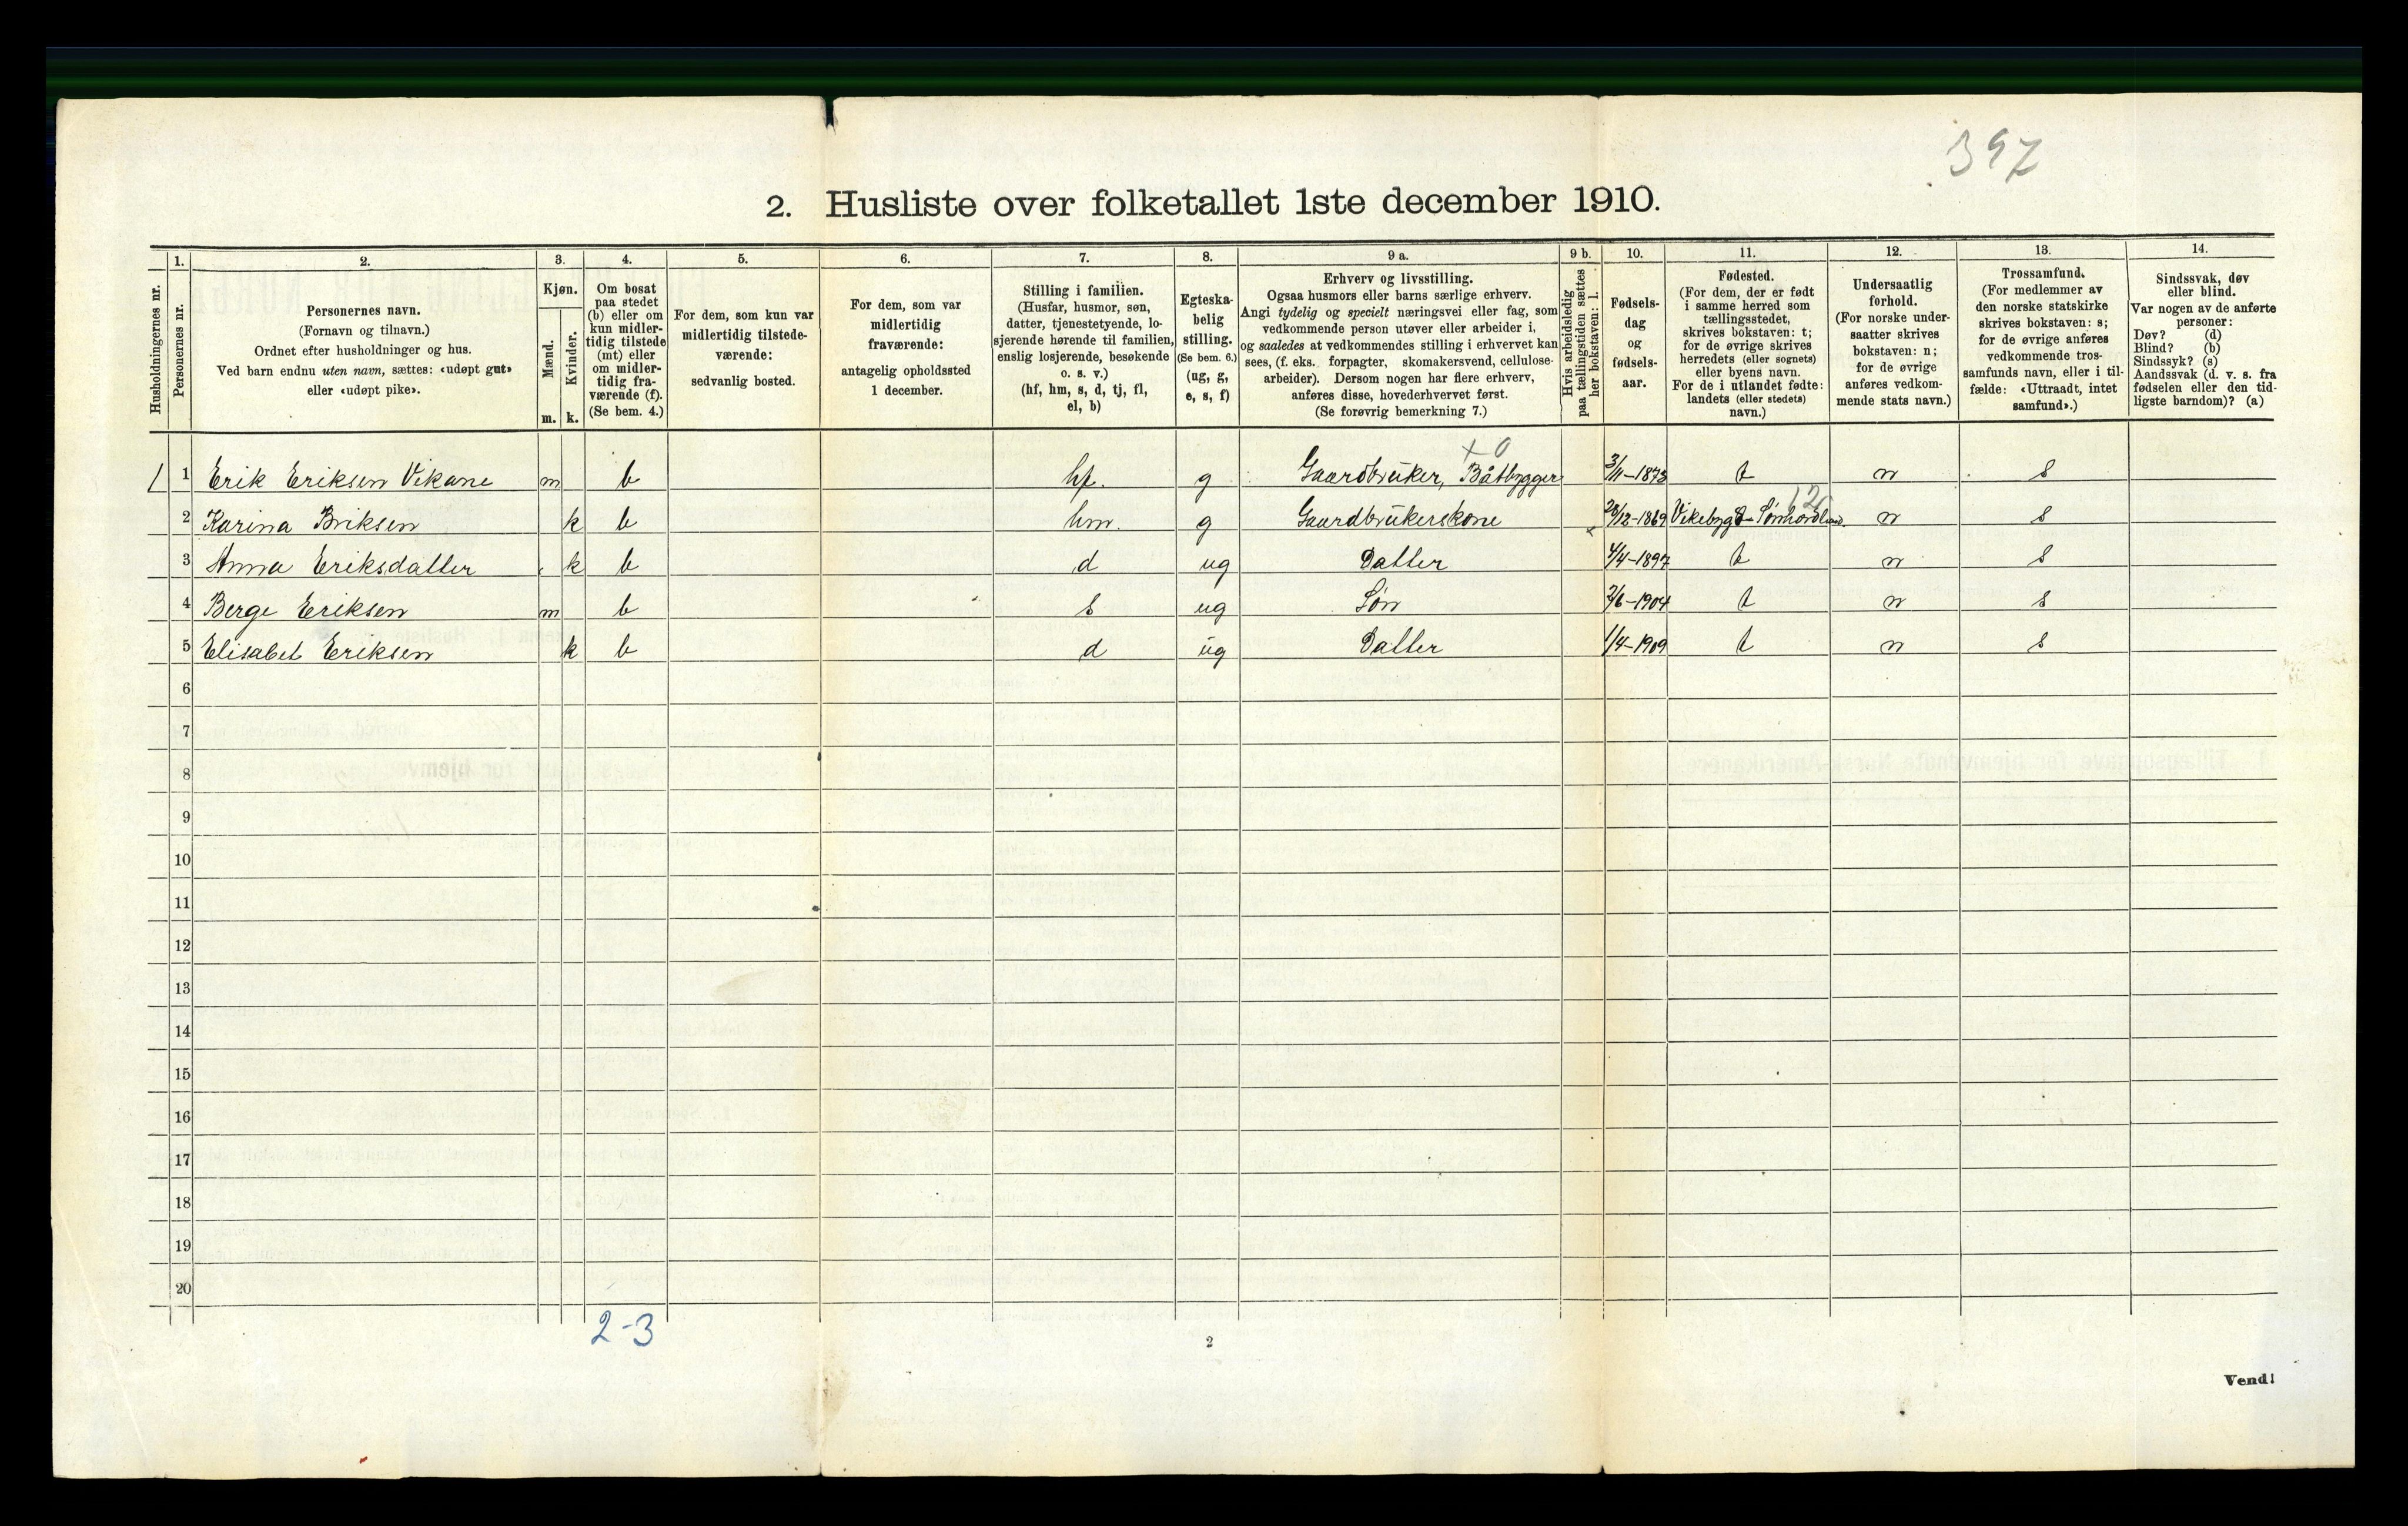 397
2. Husliste over folketallet 1ste december 1910.
Husholdningernes nr.
1.
Personernes nr.
2.
Personernes navn.
(Fornavn og tilnavn.)
Ordnet efter husholdninger og hus.
Ved barn endnu uten navn, sættes: «udøpt gut»
eller «udøpt pike».
3.
Kjøn.
Mænd.
Kvinder.
m. k.
4.
Om bosat
paa stedet
(b) eller om
kun midler-
tidig tilstede
(mt) eller
om midler-
tidig fra-
værende (f).
(Se bem. 4.)
5.
For dem, som kun var
midlertidig tilstede-
værende:
sedvanlig bosted.
6.
For dem, som var
midlertidig
fraværende:
antagelig opholdssted
1 december.
7.
Stilling i familien.
(Husfar, husmor, søn,
datter, tjenestetyende, lo-
sjerende hørende til familien,
enslig losjerende, besøkende
o. s. v.)
(hf, hm, s, d, tj, fl,
el, b)
8.
Egteska-
belig
stilling.
(Se bem. 6.)
(ug, g,
e, s, f)
9 a.
Erhverv og livsstilling.
Ogsaa husmors eller barns særlige erhverv.
Angi tydelig og specielt næringsvei eller fag, som
vedkommende person utøver eller arbeider i,
og saaledes at vedkommendes stilling i erhvervet kan
sees, (f. eks. forpagter, skomakersvend, cellulose-
arbeider). Dersom nogen har flere erhverv,
anføres disse, hovederhvervet først.
(Se forøvrig bemerkning 7.)
9 b.
Hvis arbeidsledig
paa tællingstiden sættes
her bokstaven: l.
10.
Fødsels-
dag
og
fødsels-
aar.
11.
Fødested.
(For dem, der er født
i samme herred som
tællingsstedet,
skrives bokstaven: t;
for de øvrige skrives
herredets (eller sognets)
eller byens navn.
For de i utlandet fødte:
landets (eller stedets)
navn.)
12.
Undersaatlig
forhold.
(For norske under-
saatter skrives
bokstaven: n;
for de øvrige
anføres vedkom-
mende stats navn.)
13.
Trossamfund.
(For medlemmer av
den norske statskirke
skrives bokstaven: s;
for de øvrige anføres
vedkommende tros-
samfunds navn, eller i til-
fælde: «Uttraadt, intet
samfund».)
14.
Sindssvak, døv
eller blind.
Var nogen av de anførte
personer:
Døv? (d)
Blind? (b)
Sindssyk? (s)
Aandssvak (d. v. s. fra
fødselen eller den tid-
ligste barndom)? (a)
x 0
1 1 Erik Eriksen Vikane m b hf. g Gaardbruker, Båtbygger 3/11-1873 t n s
12
2 Karina Briksen k b hm. g Gaardbrukerskone 28/12-1869 Vikebygd - Sønhordland. n s
3 Anna Eriksdatter k b d ug Datter 4/4-1897 t n s
4 Berge Eriksen m b s ug Søn 2/6-1904 t n s
5 Elisabet Eriksen k b d ug Datter 1/4-1909 t n s
6
7
8
9
10
11
12
13
14
15
16
17
18
19
20
2-3
2
Vend!